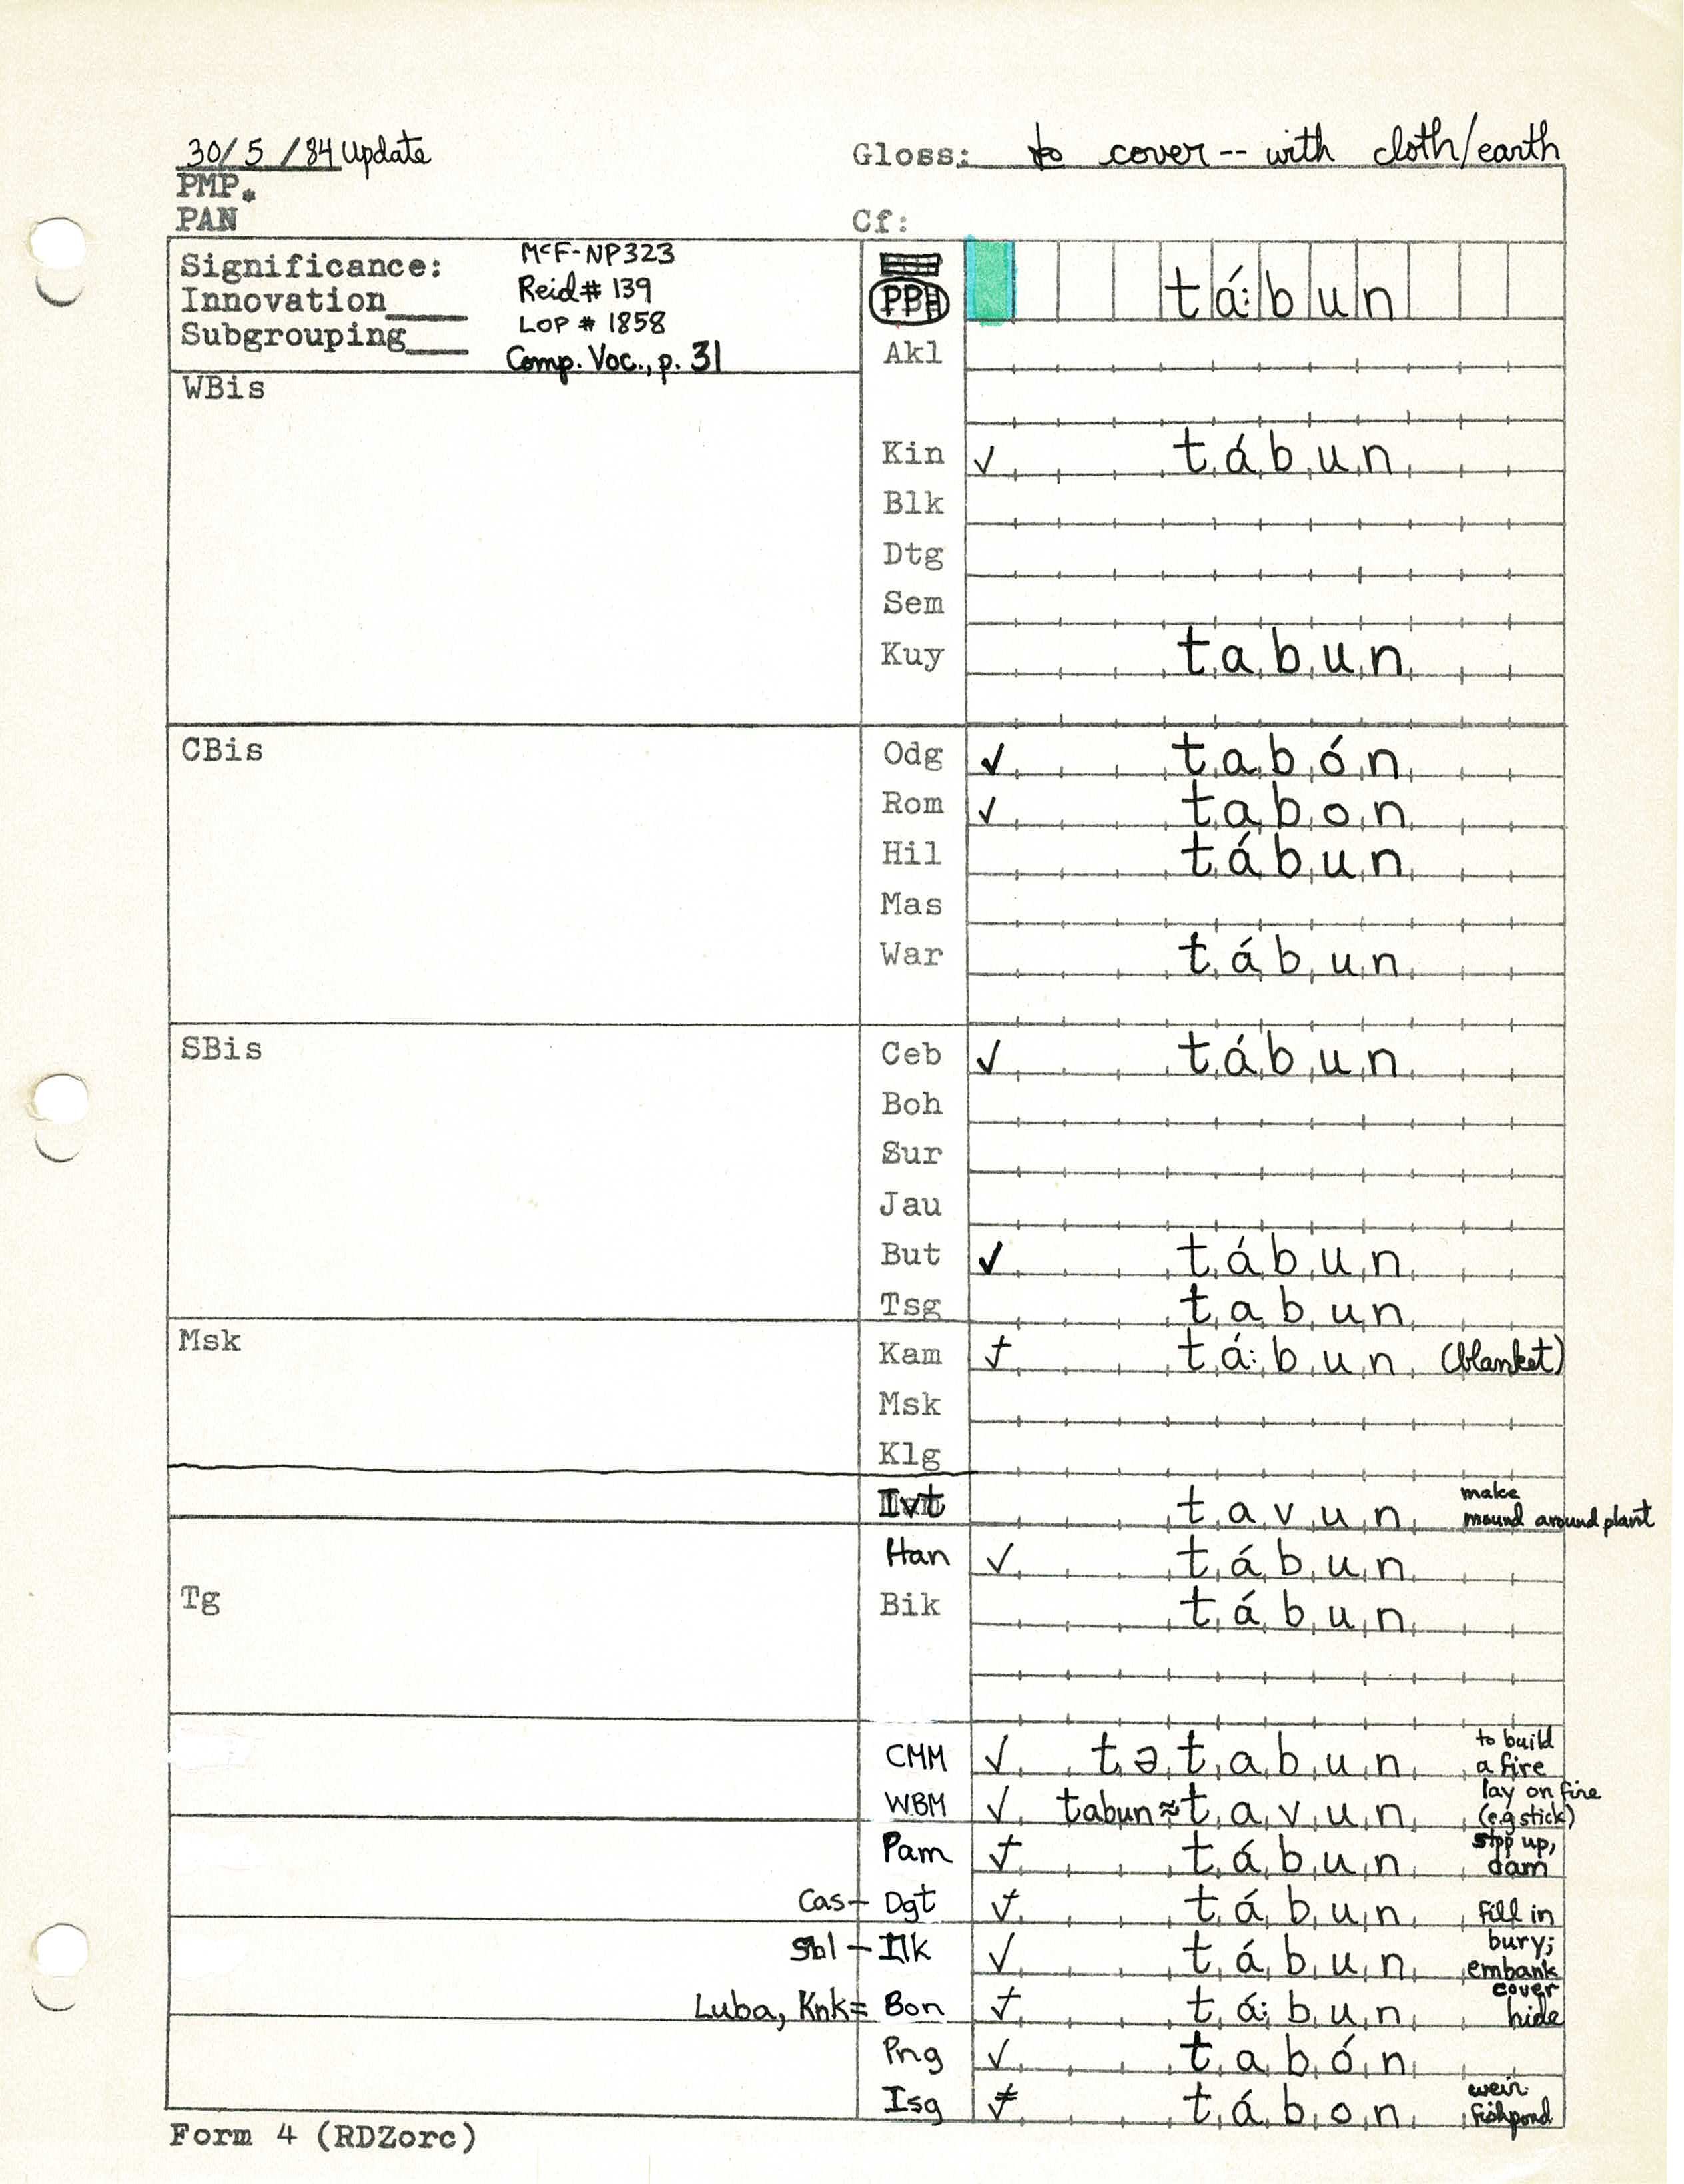 30/5/84 update
Gloss: to cover -- with cloth/earth
PMP*
PAN
Cf:
Significance:
Innovation____
Subgrouping____
McF-NP323
Reid# 139
LOP # 1858
Comp. Voc., p. 31
PPH tá:bun
Akl
WBis
Kin ✓ tábun
Blk
Dtg
Sem
Kuy tabun
CBis
Odg ✓ tabón
Rom ✓ tabon
Hil tábun
Mas
War tábun
SBis
Ceb ✓ tábun
Boh
Sur
Jau
But ✓ tábun
Tsg tabun
Msk
Kam tá:bun (blanket)
Msk
Klg
Ivt tavun make mound around plant
Han ✓ tábun
Tg
Bik tábun
CMM ✓ tətabun to build a fire
WBM ✓ tabun≈tavun lay on fire (e.g stick)
Pam tábun stop up, dam
Cas - Dgt tábun fill in
Sbl - Ilk ✓ tábun bury; embank
Luba, Knk= Bon tá:bun cover hide
Png ✓ tabón
Isg tábon weir fishpond
Form 4 (RDZorc)